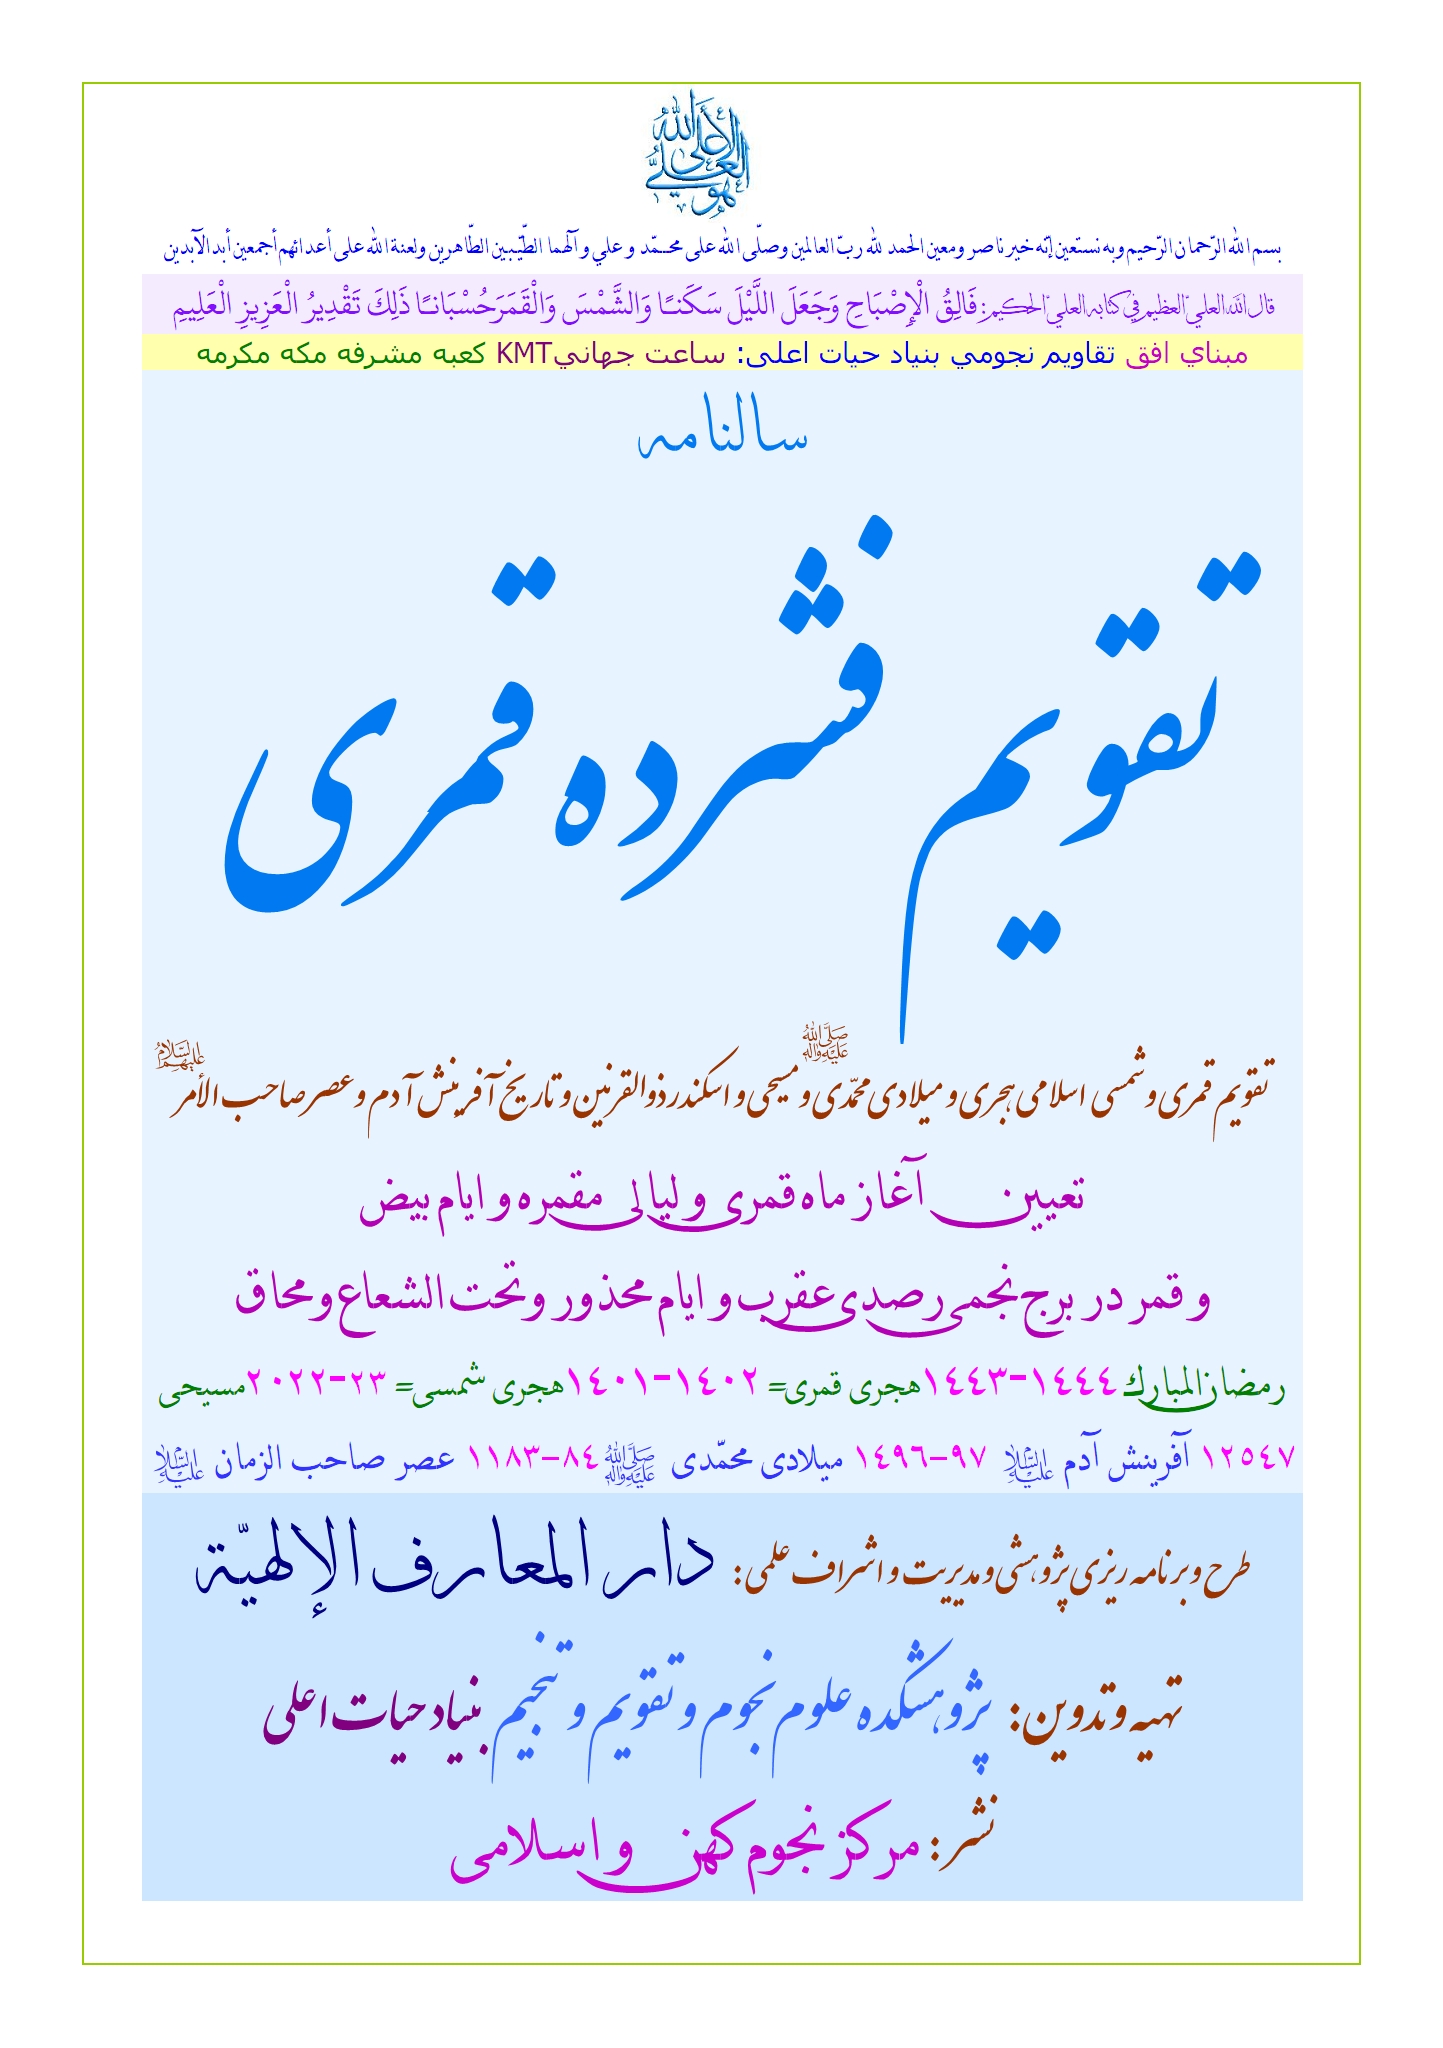 هو العلي الأعلى الله
بسم الله الرّحمان الرّحیم وبه نستعین إنّه خیر ناصر ومعین الحمد لله ربّ العالمین وصلّی الله علی محـمّد وعلي وآلهما الطّیّبین الطّاهرین ولعنة الله علی أعدائهم أجمعین أبد الآبدین
قال الله العليّ العظیم في کتابه العليّ الحکیم: فَالِقُ الْإِصْبَاحِ وَجَعَلَ اللَّيْلَ سَكَنًا وَالشَّمْسَ وَالْقَمَرَ حُسْبَانًا ذَلِكَ تَقْدِيرُ الْعَزِيزِ الْعَلِيمِ
مبناي افق تقاويم نجومي بنياد حيات اعلى: ساعت جهاني KMT كعبه مشرفه مكه مكرمه
سالنامه
تقویم فشرده قمری
تقویم قمری و شمسی اسلامی هجری و میلادی محمّدی ﷺ و مسیحی و اسکندر ذوالقرنین و تاریخ آفرینش آدم و عصر صاحب الأمر علیهم السلام
تعیین آغاز ماه قمری و لیالی مقمره و ایام بیض
و قمر در برج نجمی رصدی عقرب و ایام محذور و تحت الشعاع و محاق
رمضان المبارك ١٤٤٤-١٤٤٣ هجری قمری= ١٤٠٢-١٤٠١ هجری شمسی= ٢٣-٢٠٢٢ مسیحی
١٢٥٤٧ آفرینش آدم علیه السلام ٩٧-١٤٩٦ میلادی محمّدی ﷺ ٨٤-١١٨٣ عصر صاحب الزمان علیه السلام
طرح و برنامه ریزی پژوهشی و مدیریت و اشراف علمی: دار المعارف الإلهیّة
تهیه و تدوین: پژوهشکده علوم نجوم و تقویم و تنجیم بنیاد حیات اعلی
نشر: مرکز نجوم کهن و اسلامی